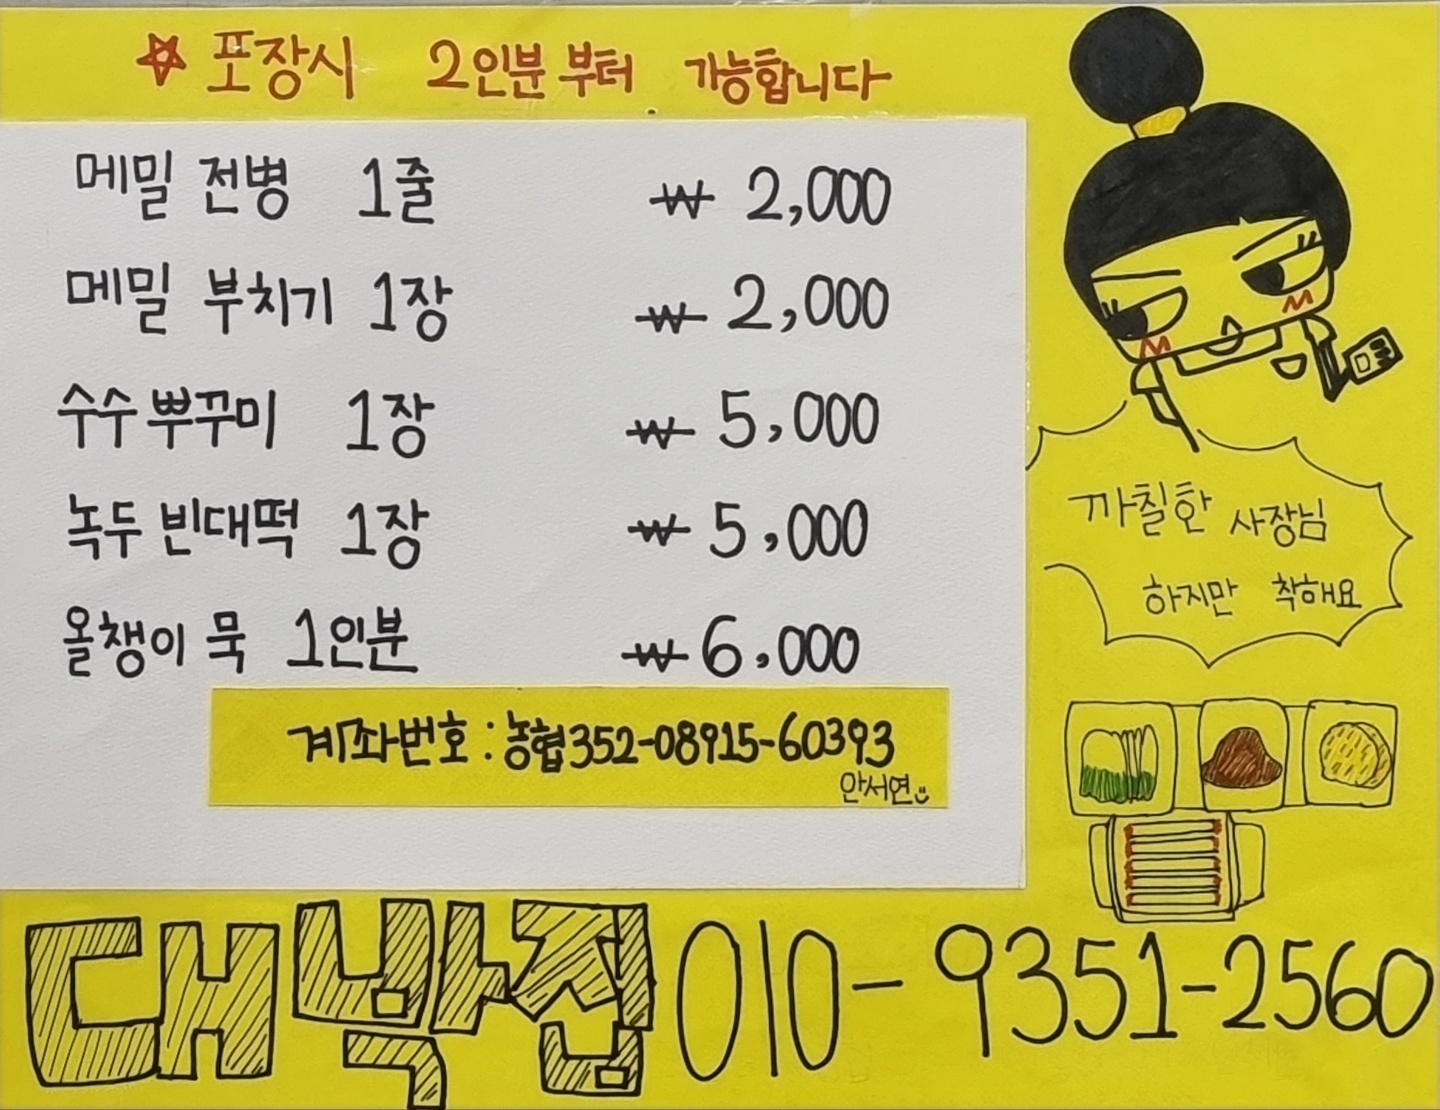 ☆ 포장시 2인분 부터 가능합니다
메밀 전병 1줄 ₩ 2,000
메밀 부치기 1장 ₩ 2,000
수수 뿌꾸미 1장 ₩ 5,000
녹두 빈대떡 1장 ₩ 5,000
올챙이 묵 1인분 ₩ 6,000
계좌번호 : 농협352-08915-60393
안서연
까칠한 사장님
하지만 착해요
대박집 010-9351-2560